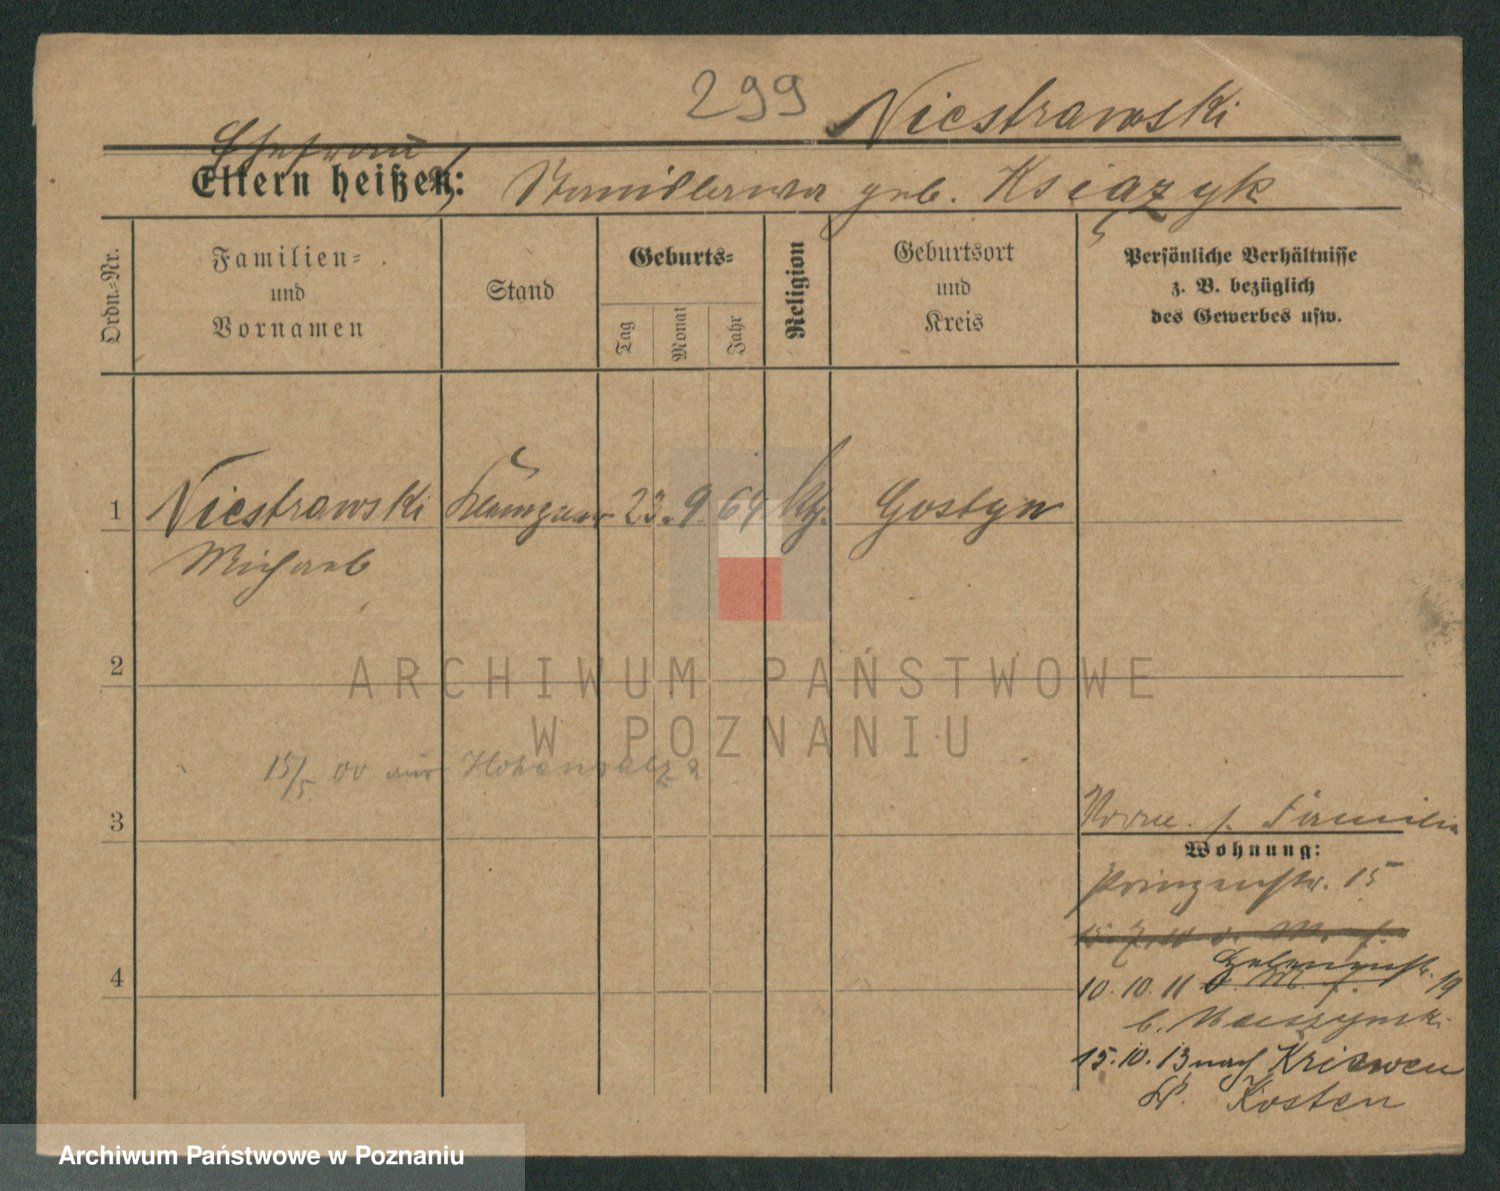 299 Niestrawski
Ehefrau
Eltern heißen: Stanislawa geb. Książyk
Ordn.-Nr.
Familien-
und
Vornamen
Stand
Geburts-
Tag
Monat
Jahr
Religion
Geburtsort
und
Kreis
Persönliche Verhältnisse
z. B. bezüglich
des Gewerbes usw.
1 Niestrawski 23. 9. 64 Gostyn
Michael
2
ARCHIWUM PAŃSTWOWE
W POZNANIU
15/5 00 aus Hohensalza
3
Familie
Wohnung:
Prinzenstr. 15
10. 10. 11 19
b.
15. 10. 13 nach Kriewen
Kosten
4
Archiwum Państwowe w Poznaniu